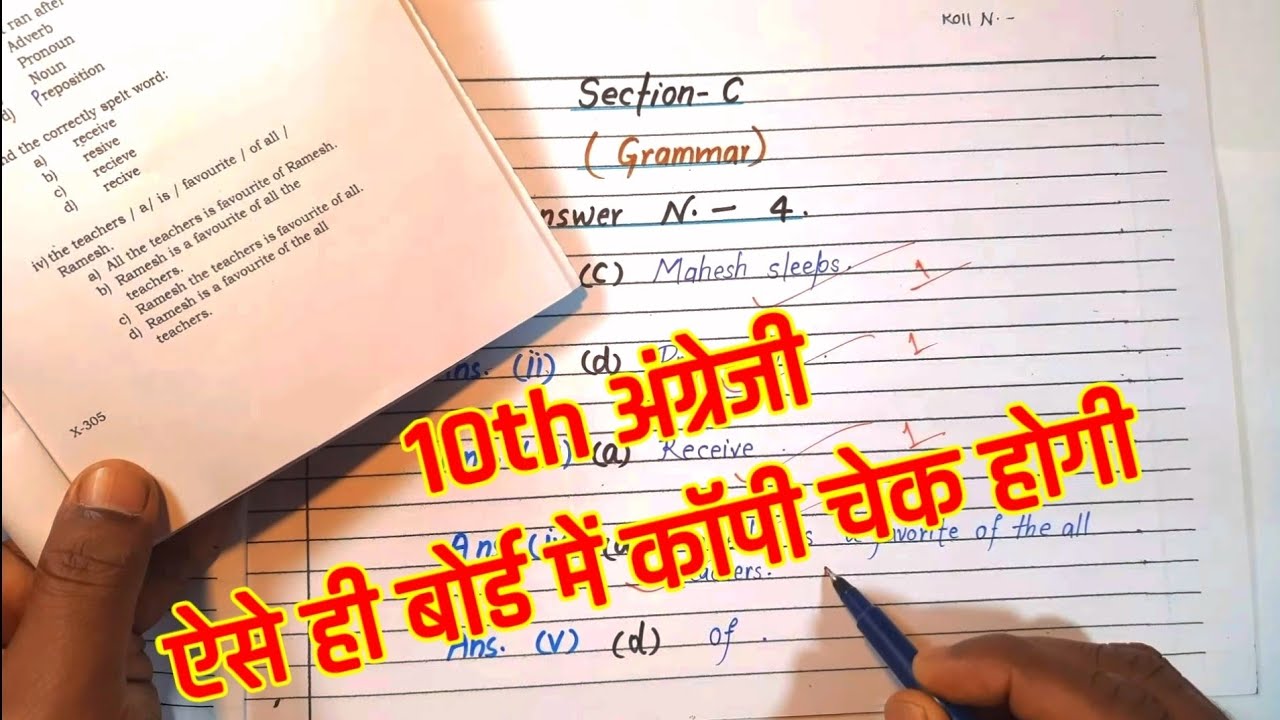 ran after
Adverb
Pronoun
Noun
d) Preposition
nd the correctly spelt word:
a) receive
b) resive
c) recieve
d) recive
iv) the teachers / a/ is / favourite / of all /
Ramesh.
a) All the teachers is favourite of Ramesh.
b) Ramesh is a favourite of all the
teachers.
c) Ramesh the teachers is favourite of all.
d) Ramesh is a favourite of the all
teachers.
X-305
Roll N. -
Section - C
( Grammar)
nswer N. - 4.
(C) Mahesh sleeps.
1
Ans. (ii) (d)
1
(a) Receive
1
Ans. favorite of the all
Ans. (v) (d) of .
10th अंग्रेजी
ऐसे ही बोर्ड में कॉपी चेक होगी